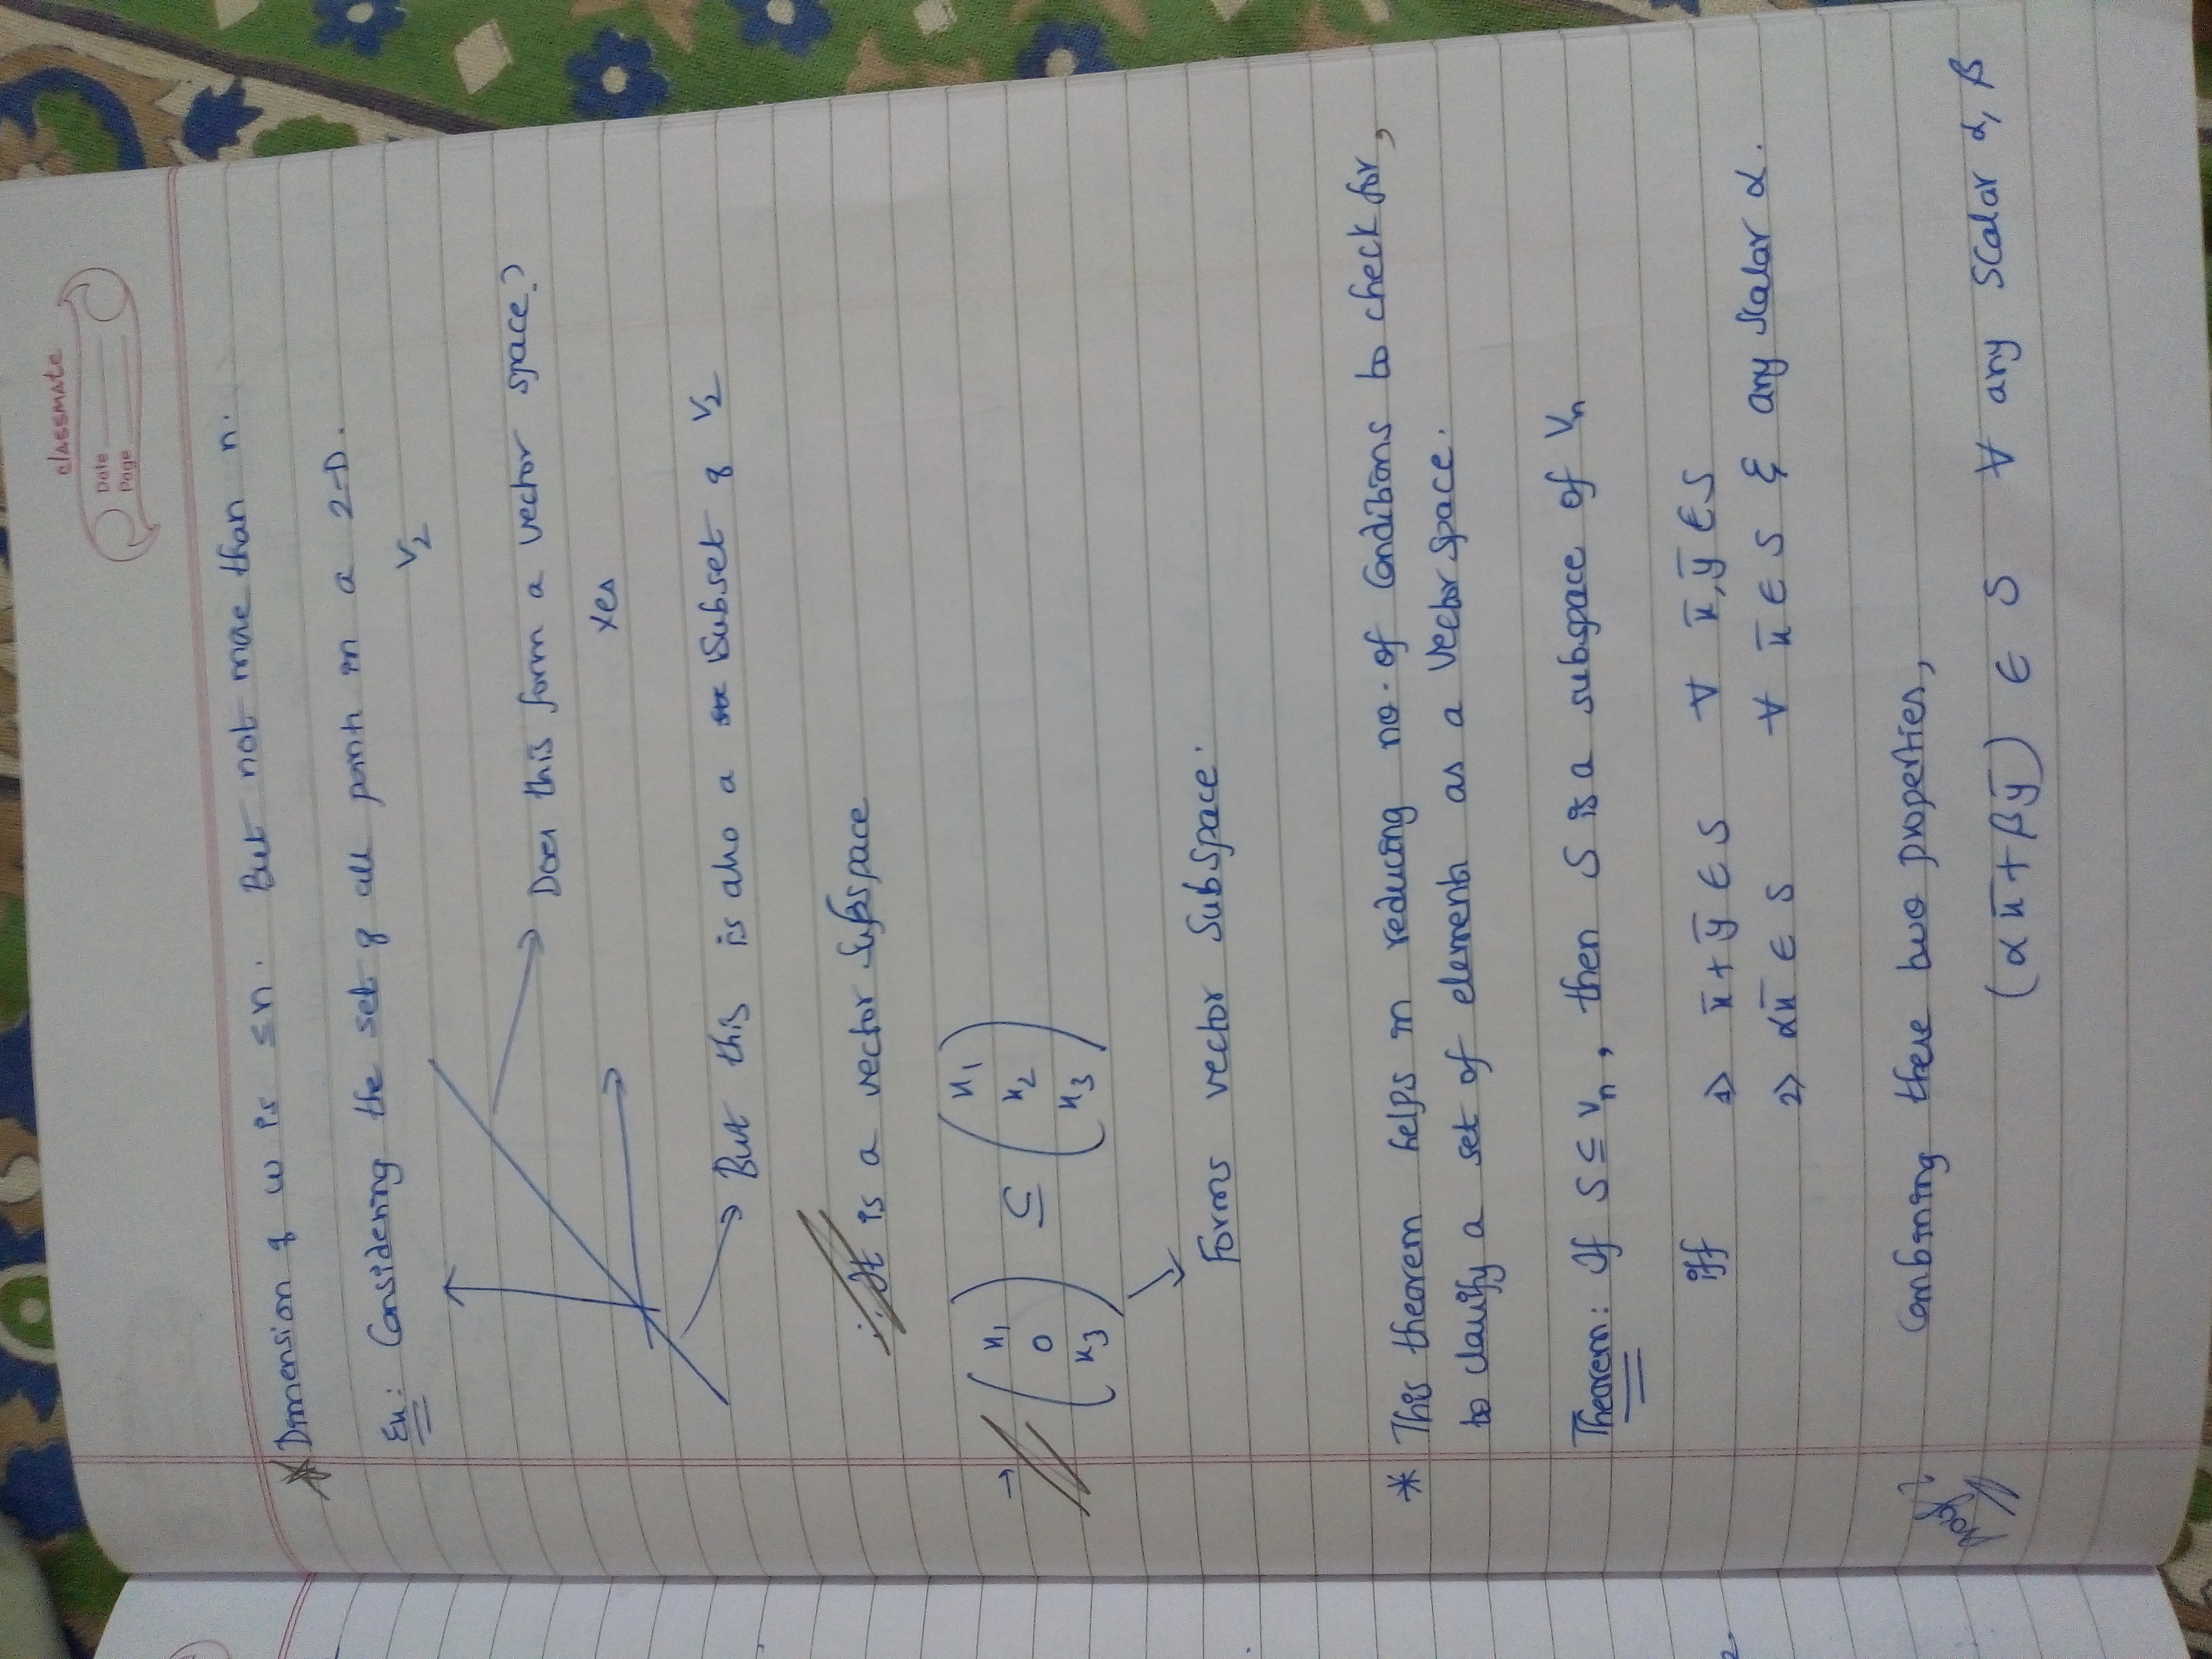 classmate
Date
Page
Dimension of w is ≤n. But not more than n.
Ex: Considering the set of all points in a 2-D.
V₂
Does this form a vector space?
Yes
But this is also a subset of V₂
∴ It is a vector Subspace
→ (x₁ 0 x₃) ⊆ (x₁ x₂ x₃)
Forms vector subspace.
* This theorem helps in reducing no. of conditions to check for,
to classify a set of elements as a vector space.
Theorem: If S ⊆ Vₙ, then S is a subspace of Vₙ
iff 1> x̄+ȳ ∈ S ∀ x̄,ȳ ∈ S
2> αx̄ ∈ S ∀ x̄ ∈ S & any scalar α.
Proof
Combining these two properties,
(αx̄ + βȳ) ∈ S ∀ any scalar α, β